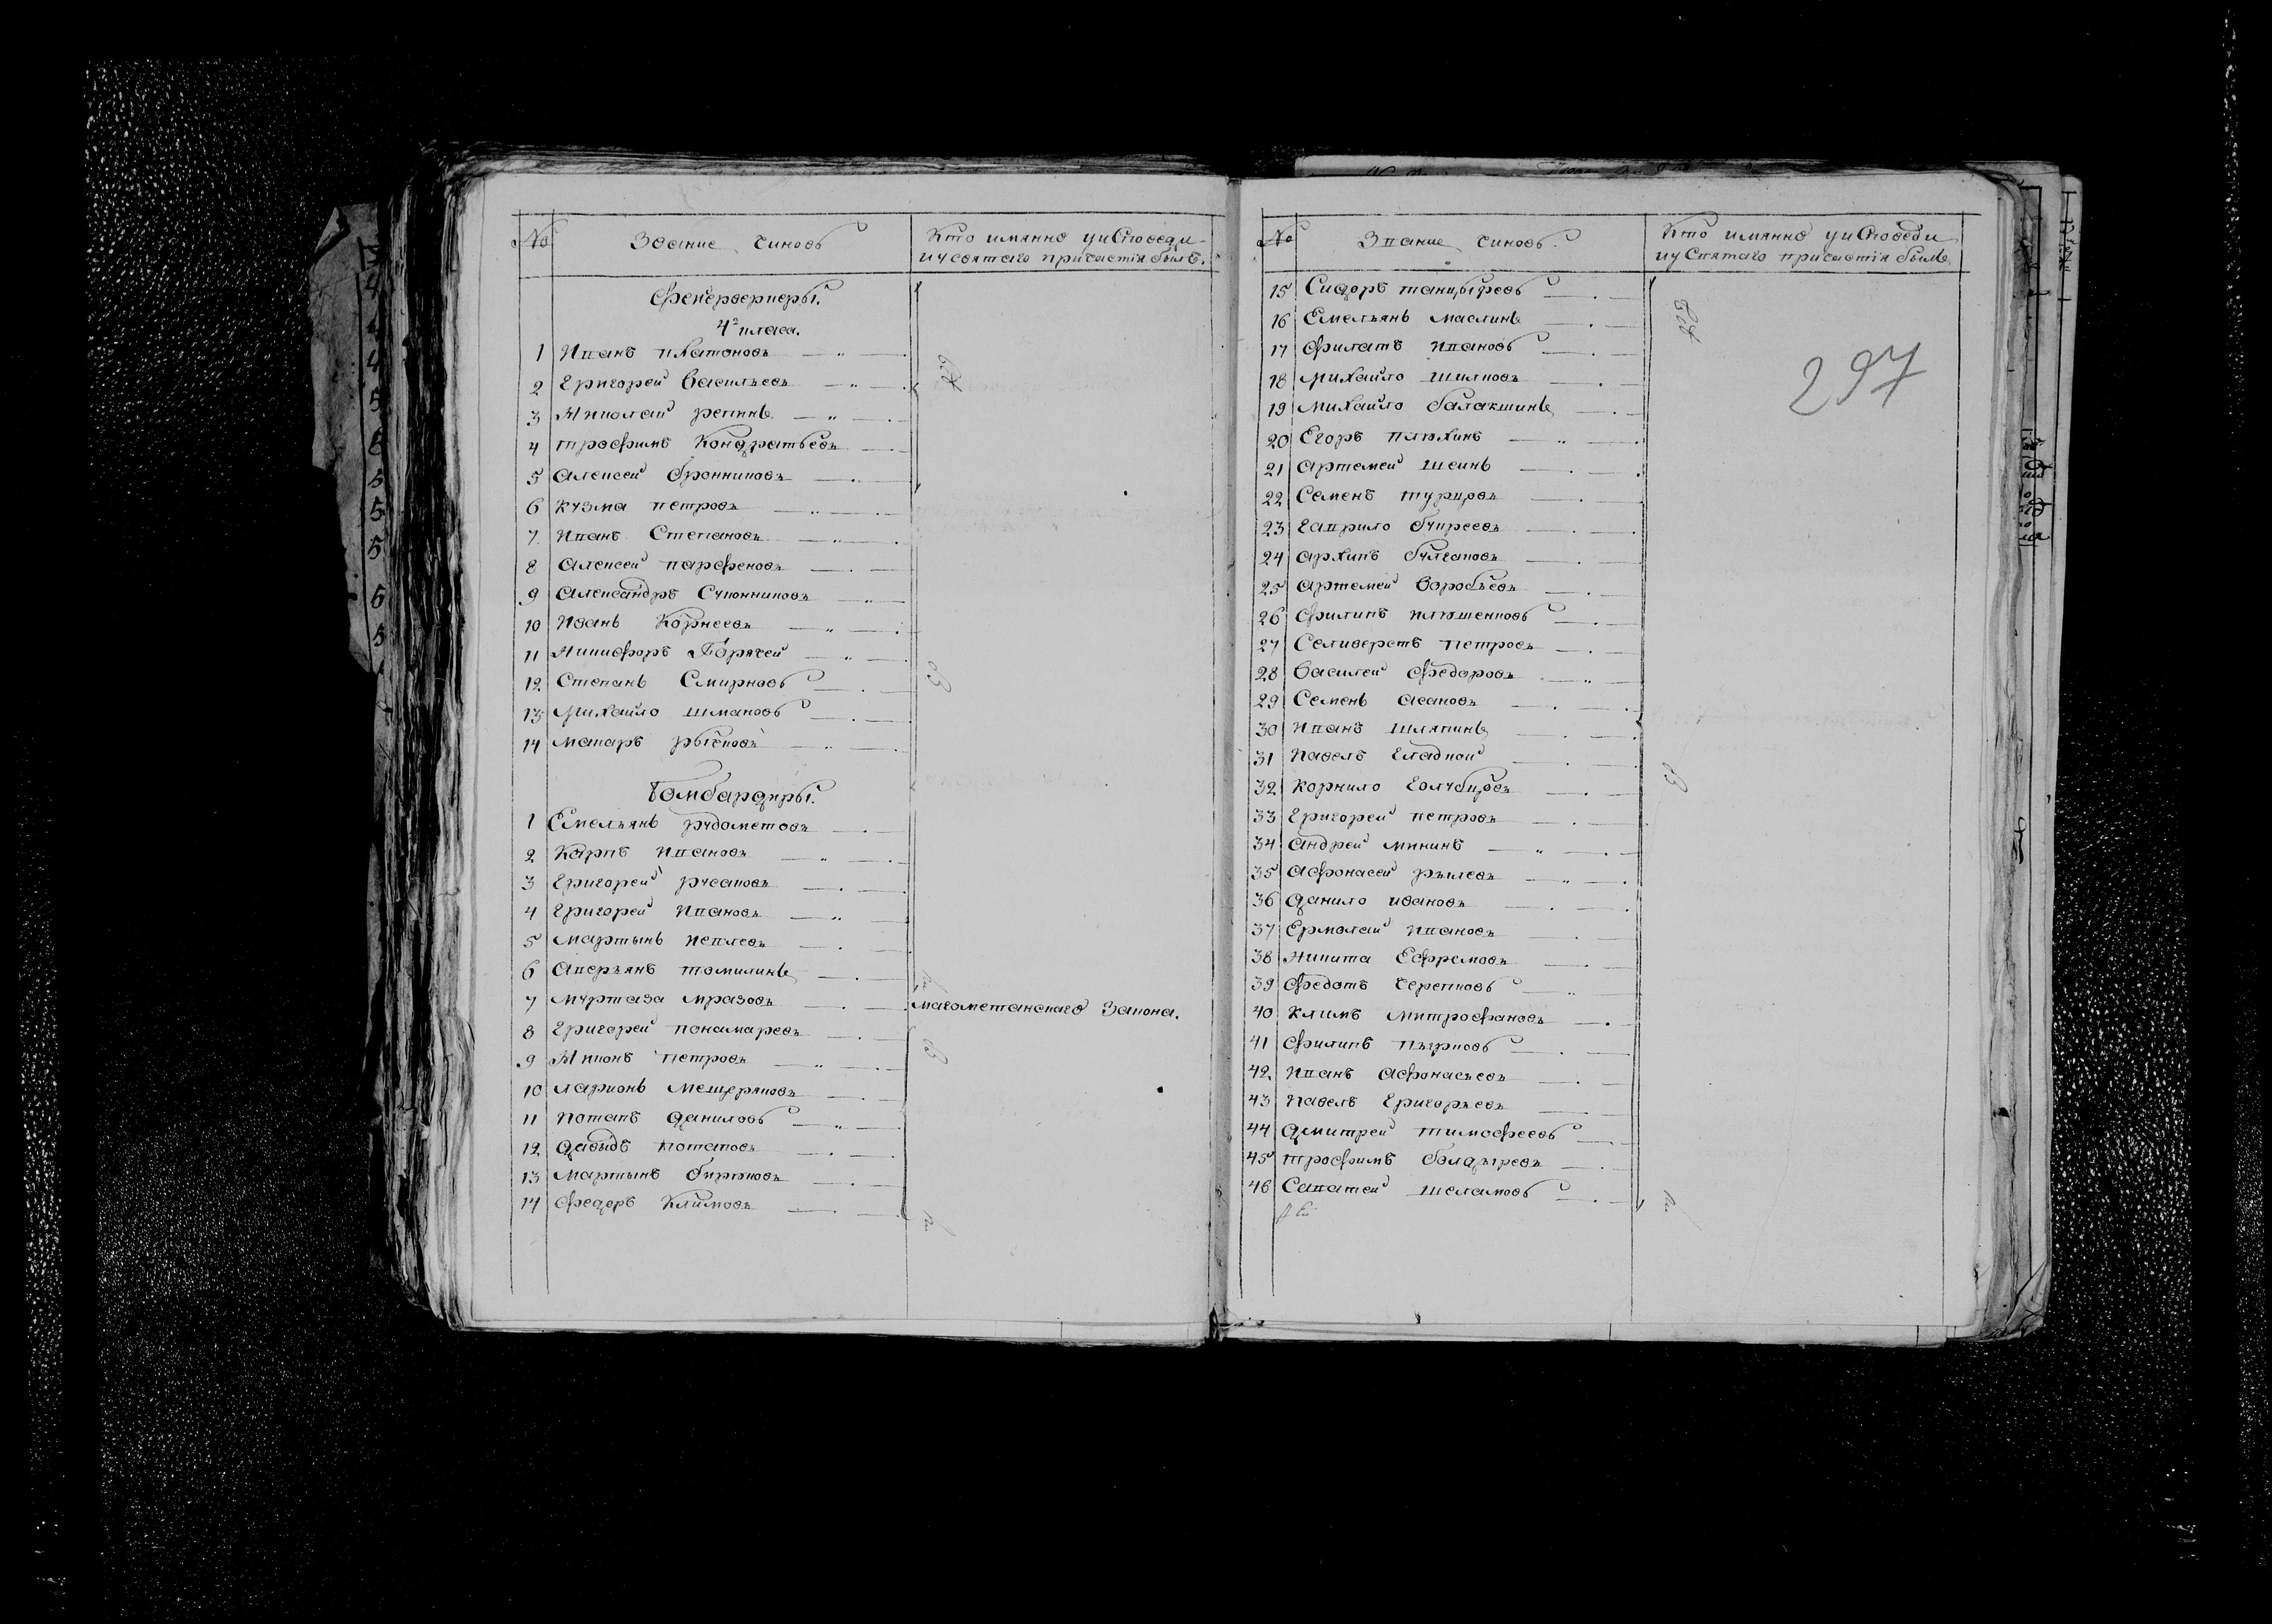 № Звание чиновъ Кто имянно уисповеди
иусвятаго причастія былъ.
Феиерверкеры.
4го класа.
1 Иванъ платоновъ
2 Григорей Васильевъ
3 Николай репинъ
4 трофимъ Кондратьевъ
5 алексей бронниковъ
6 кузма петровъ
7 Иванъ Степановъ
8 алексей парфеновъ
9 александръ Суконниковъ
10 Иванъ Корнеевъ
11 Никифоръ Горячей
12 Степанъ Смирновъ
13 михайло шмаковъ
14 макаръ рычковъ
Бомбардиры.
1 Емельянъ рудометовъ
2 Карпъ Ивановъ
3 Григорей русаковъ
4 Григорей Ивановъ
5 мартынъ
6 аверьянъ томилинъ
7 муртаза мразовъ магометанскаго Закона.
8 Григорей понамаревъ
9 петровъ
10 ларионъ мещеряковъ
11 Потапъ даниловъ
12 давыдъ потаповъ
13 мартынъ бирюковъ
14 федоръ Климовъ
№ Звание чиновъ Кто имянно уисповеди
иу Святаго причастія былъ
15 Сидоръ танцыревъ
16 Емельянъ маслинъ
17 филатъ Ивановъ
18 михайло шилковъ
19 михайло балакшинъ
20 Егоръ
21 артемей шеинъ
22 Семенъ
23 гаврило букреевъ
24 архипъ булгаковъ
25 артемей воробьевъ
26 филипъ
27 Селиверстъ петровъ
28 василей федоровъ
29 Семенъ асановъ
30 Иванъ шляпинъ
31 Павелъ гладкой
32 корнило голубцовъ
33 Григорей петровъ
34 андрей мининъ
35 афонасей рылевъ
36 данило ивановъ
37 Ермолай Ивановъ
38 Никита Ефремовъ
39 федотъ черепковъ
40 климъ митрофановъ
41 филипъ
42 Иванъ афонасьевъ
43 Павелъ Григорьевъ
44 дмитрей тимофеевъ
45 трофимъ болдыревъ
46 Саватей шеламовъ
297